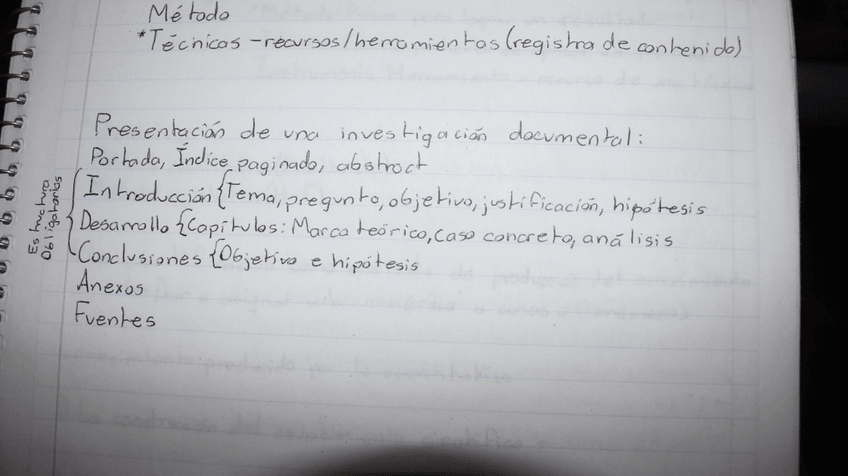 Método
*Técnicas - recursos/herramientas (registro de contenido)
Presentación de una investigación documental:
Portada, Índice paginado, abstract
Estructura
Obligatorias
Introducción {Tema, pregunta, objetivo, justificación, hipótesis
Desarrollo {Capítulos: Marco teórico, caso concreto, análisis
Conclusiones {Objetivo e hipótesis
Anexos
Fuentes